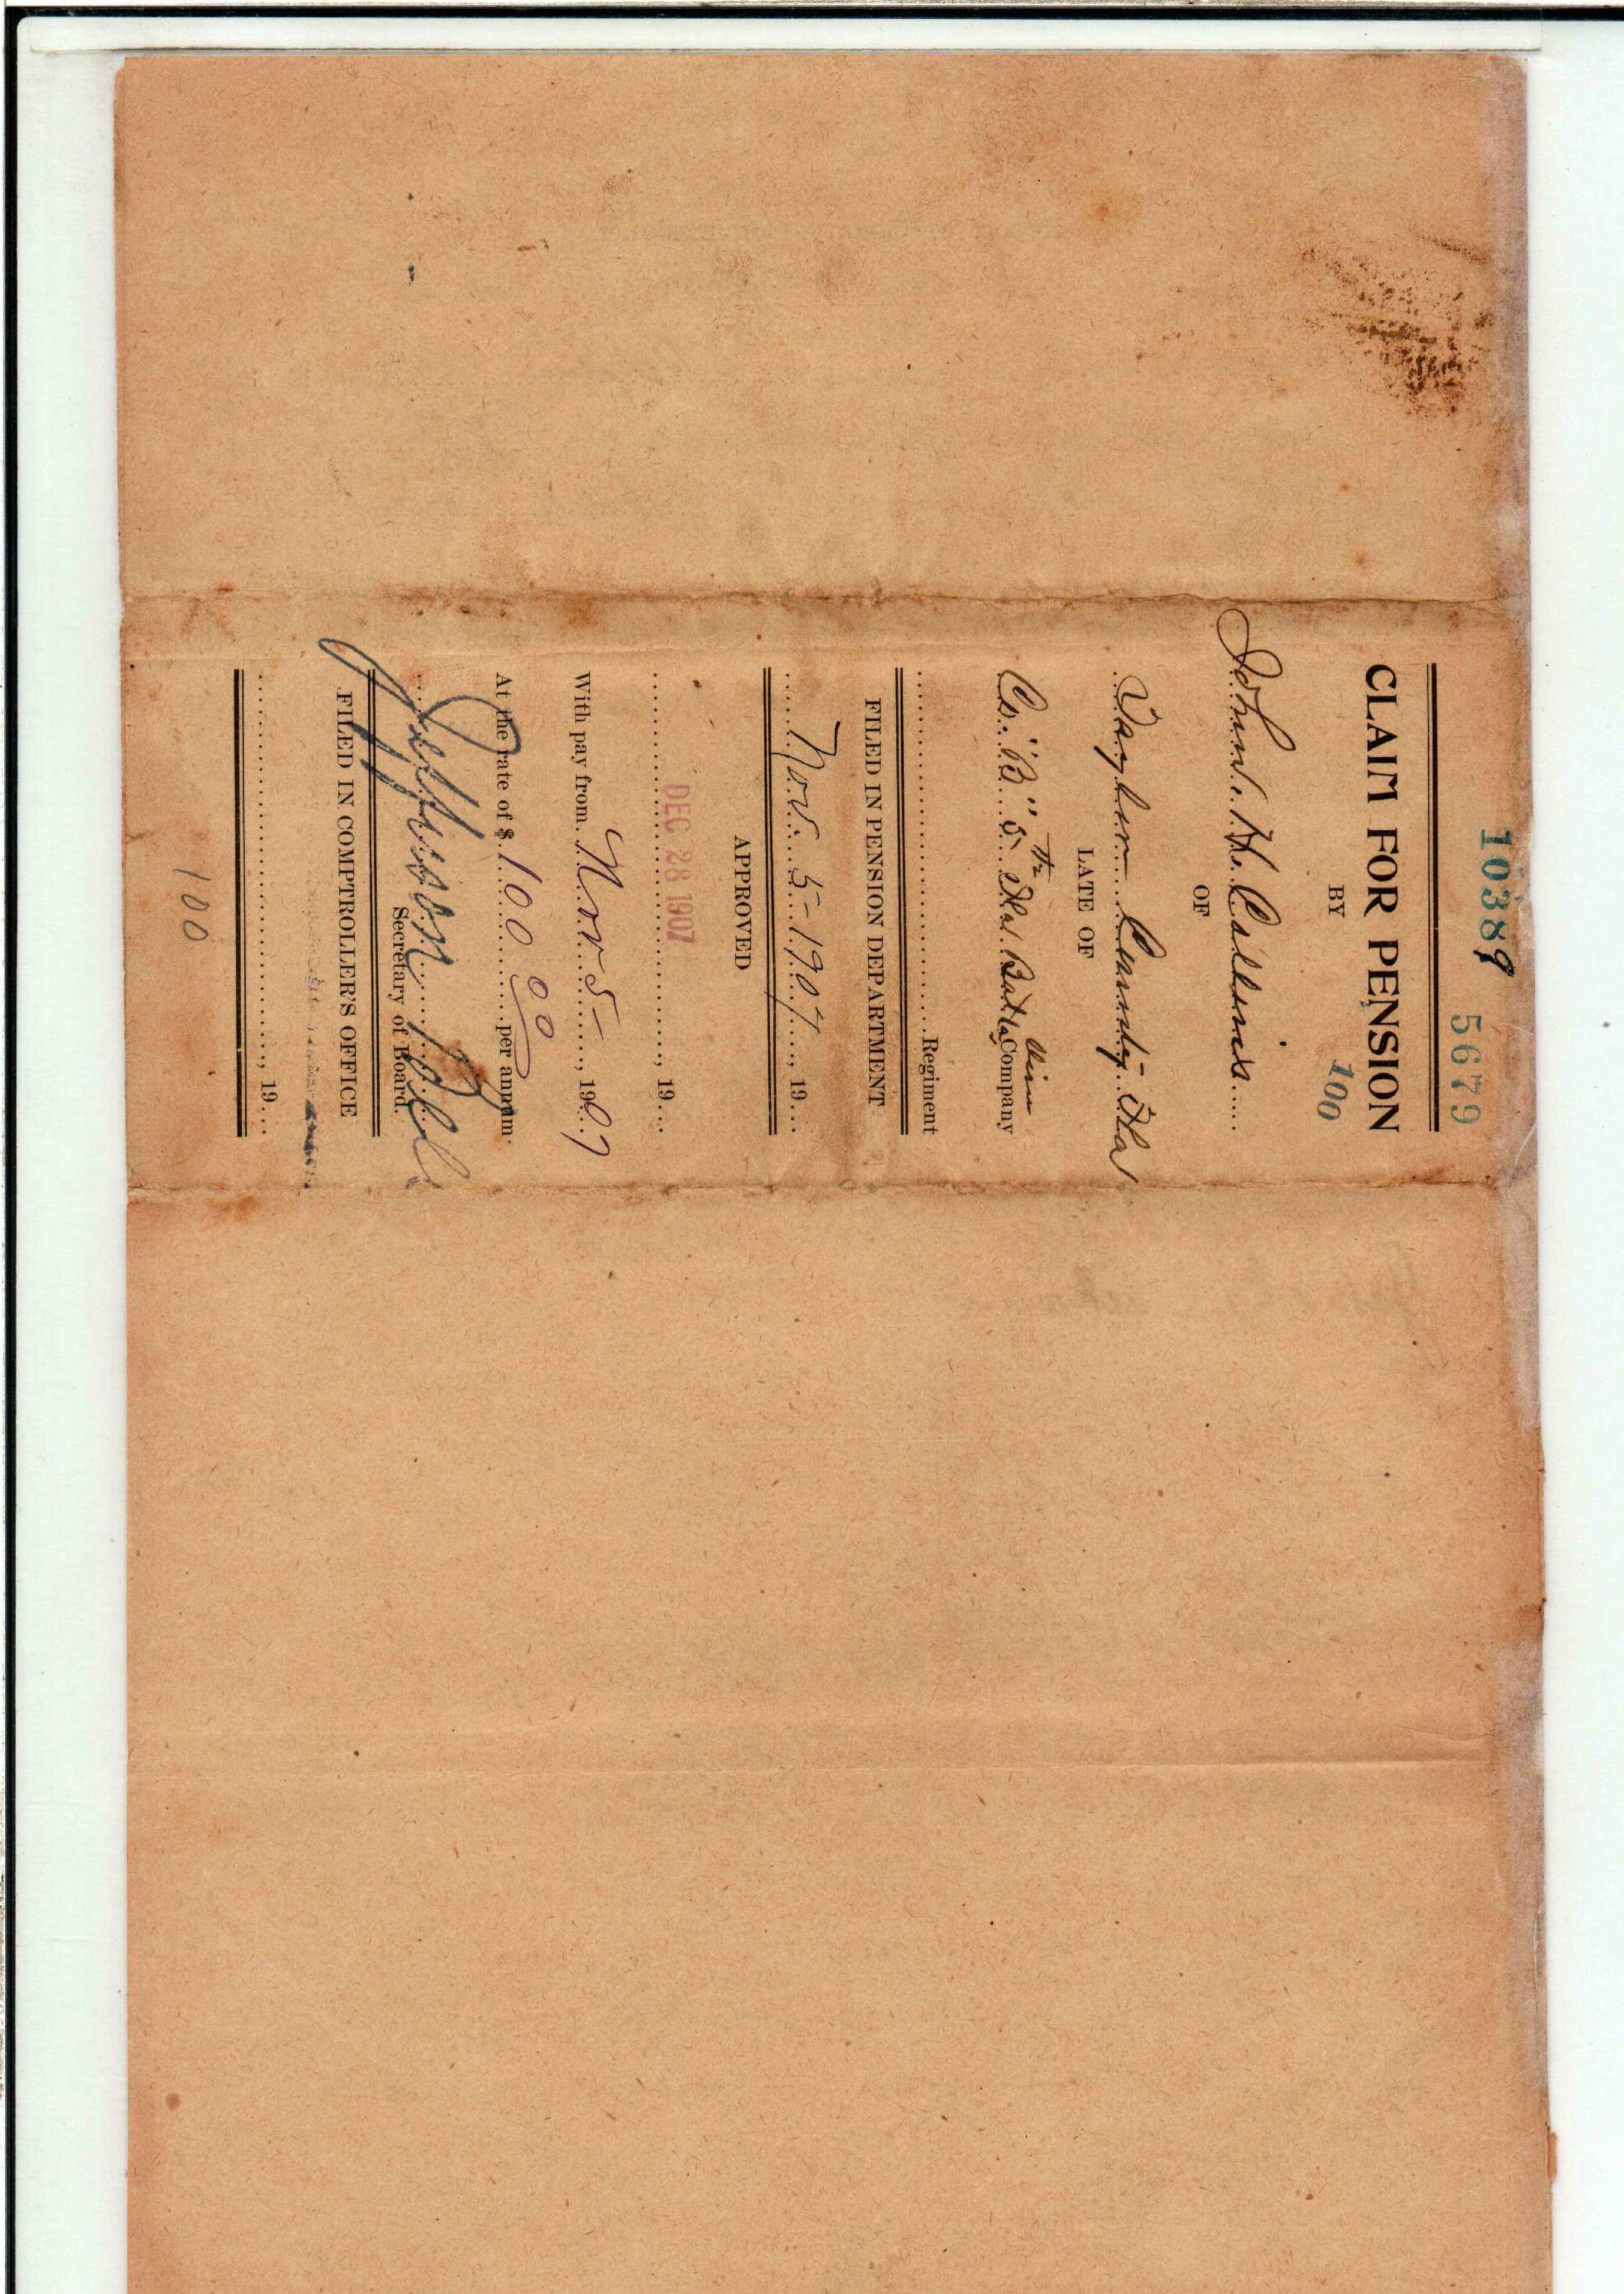 10389
5679
CLAIM FOR PENSION
BY
100
John H. Callins
OF
County Fla
LATE OF
Co. "B" 5th Fla. Company
Regiment
FILED IN PENSION DEPARTMENT
Nov. 5-1907, 19
APPROVED
DEC 28 1907, 19
With pay from Nov 5-, 1907
At the rate of $ 100 00 per annum
Jefferson Bell
Secretary of Board.
FILED IN COMPTROLLER'S OFFICE
, 19
100